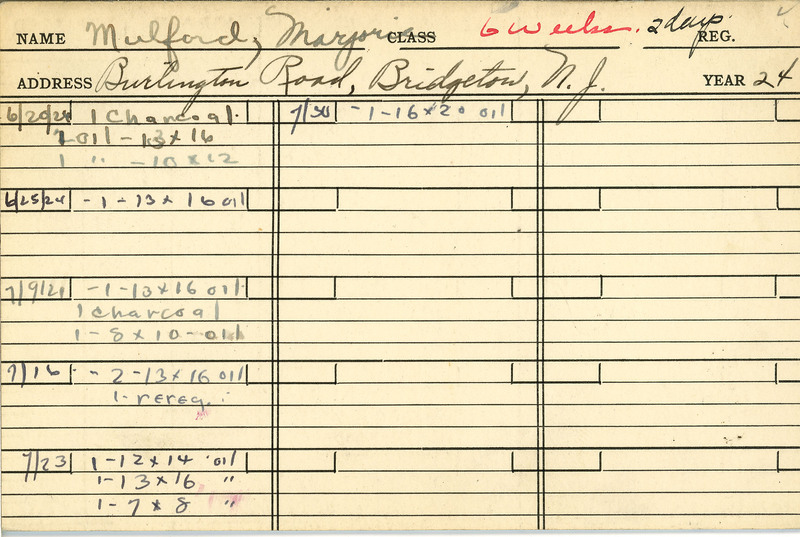 NAME Mulford, Marjorie CLASS 6 weeks. 2 days. REG.
ADDRESS Burlington Road, Bridgeton, N.J. YEAR 24
6/20/24 1 Charcoal.
oil - 13 x 16
1 " - 10 x 12
6/25/24 - 1 - 13 x 16 oil
7/9/24 - 1 - 13 x 16 oil.
1 charcoal
1 - 8 x 10 - oil
7/16 - 2 - 13 x 16 oil
1 - rereg.
7/23 1 - 12 x 14 oil
1 - 13 x 16 "
1 - 7 x 8 "
7/30 - 1 - 16 x 20 oil